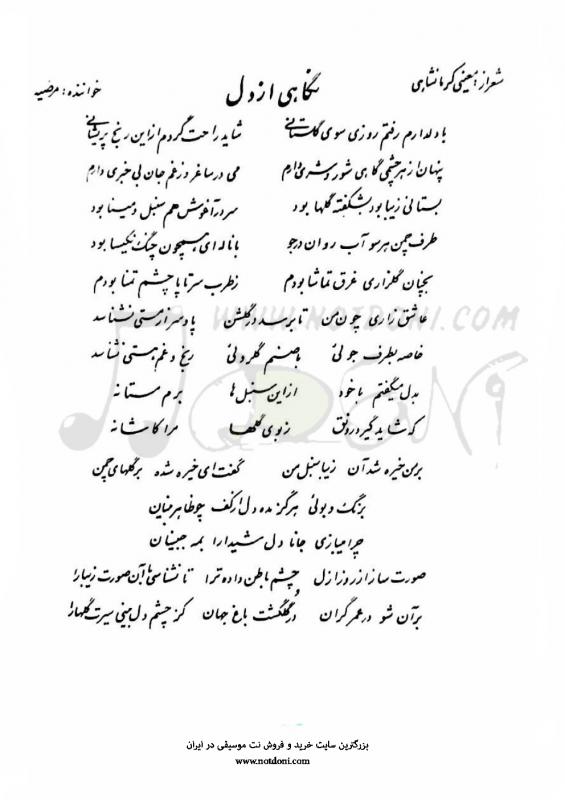 شعر از: معینی کرمانشاهی
نگاهی از دل
خواننده: مرضیه
با دلدارم رفتم روزی سوی گلستانی شاید راحت گردم از این رنج پریشانی
پنهان از هر چشمی گاهی شور و شری دارم می در ساغر و ز غم جان بی خبری دارم
بستانی زیبا بود بشکفته گلها بود سر در آغوش هم سنبل و مینا بود
طرف چمن هر سو آب روان در جو با ناله ای همچون چنگ نکیسا بود
بجنان گلزاری غرق تماشا بودم ز طرب سر تا پا چشم تمنا بودم
عاشق زاری چون من تا برسد در گلشن پا و سر از مستی نشناسد
خاصه بطرف جوئی با صنم گلروئی رنج و غم هستی نشناسد
بدل میگفتم با خود از این سنبل ها برم مستانه
که شاید گیرد رونق ز بوی گلها مرا کاشانه
بر من خیره شد آن زیبا سنبل من گفت ای خیره شده بر گلهای چمن
برنگ و بوئی هرگز مده دل از کف چو ظاهر بینان
چرا میبازی جانا دل شیدا را بمه جبینان
صورت ساز از روز ازل چشم باطن داده ترا تا نشناسی با آن صورت زیبا را
بر آن شو در عمر گران در گلگشت باغ جهان کز چشم دل بینی سیرت گلها را
WWW.NOTDONI.COM
بزرگترین سایت خرید و فروش نت موسیقی در ایران
www.notdoni.com